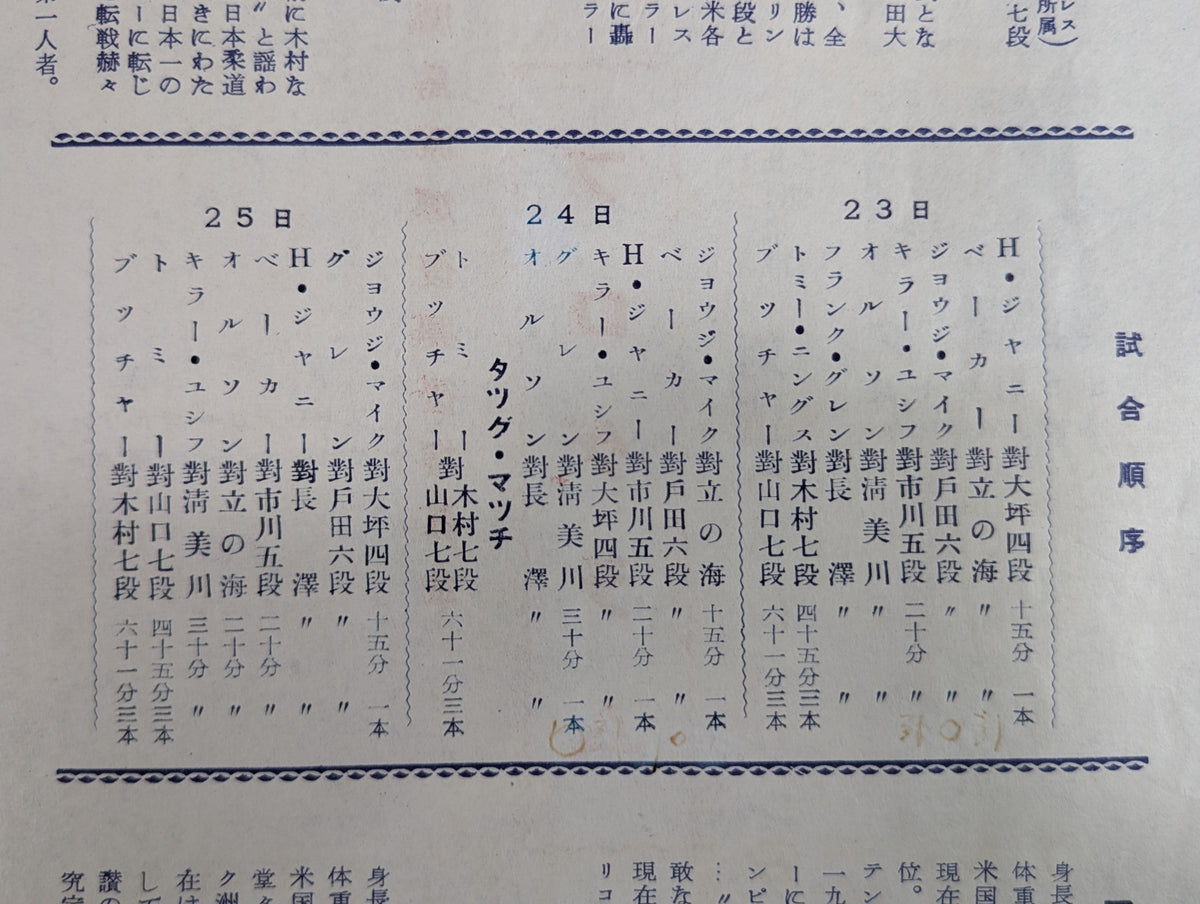 レス)
所属
七段
とな
田大
、全
勝は
リン
段と
米各
レス
ラー
に轟
ラー
に木村な
〃と謡わ
日本柔道
きにわた
日本一の
ーに転じ
転戦赫々
第一人者。
試合順序
23日
H・ジヤニー對大坪四段 十五分 一本
ベーカー對立の海 〃 〃
ジヨウジ・マイク對戸田六段 〃 〃
キラー・ユシフ對市川五段 二十分 〃
オルソン對清美川 〃 〃
フランク・グレン對長澤 〃 〃
トミー・ニングス對木村七段 四十五分三本
ブツチヤー對山口七段 六十一分三本
24日
ジヨウジ・マイク對立の海 十五分 一本
ベーカー對戸田六段 〃 〃
H・ジヤニー對市川五段 二十分 一本
キラー・ユシフ對大坪四段 〃 〃
グレン對清美川 三十分 一本
オルソン對長澤 〃 〃
タツグ・マツチ
トミー
ブツチヤー
對
木村七段
山口七段
六十一分三本
25日
ジヨウジ・マイク對大坪四段 十五分 一本
グレン對戸田六段 〃 〃
H・ジヤニー對長澤 〃 〃
ベーカー對市川五段 二十分 〃
オルソン對立の海 二十分 〃
キラー・ユシフ對清美川 三十分 〃
トミー對山口七段 四十五分三本
ブツチヤー對木村七段 六十一分三本
身長
体重
米国
現在
位。
テン
一九
ーに
ンピ
…〃
敢な
現在
リコ
身長
体重
米国
堂々
ク洲
在は
して
讃の
究家